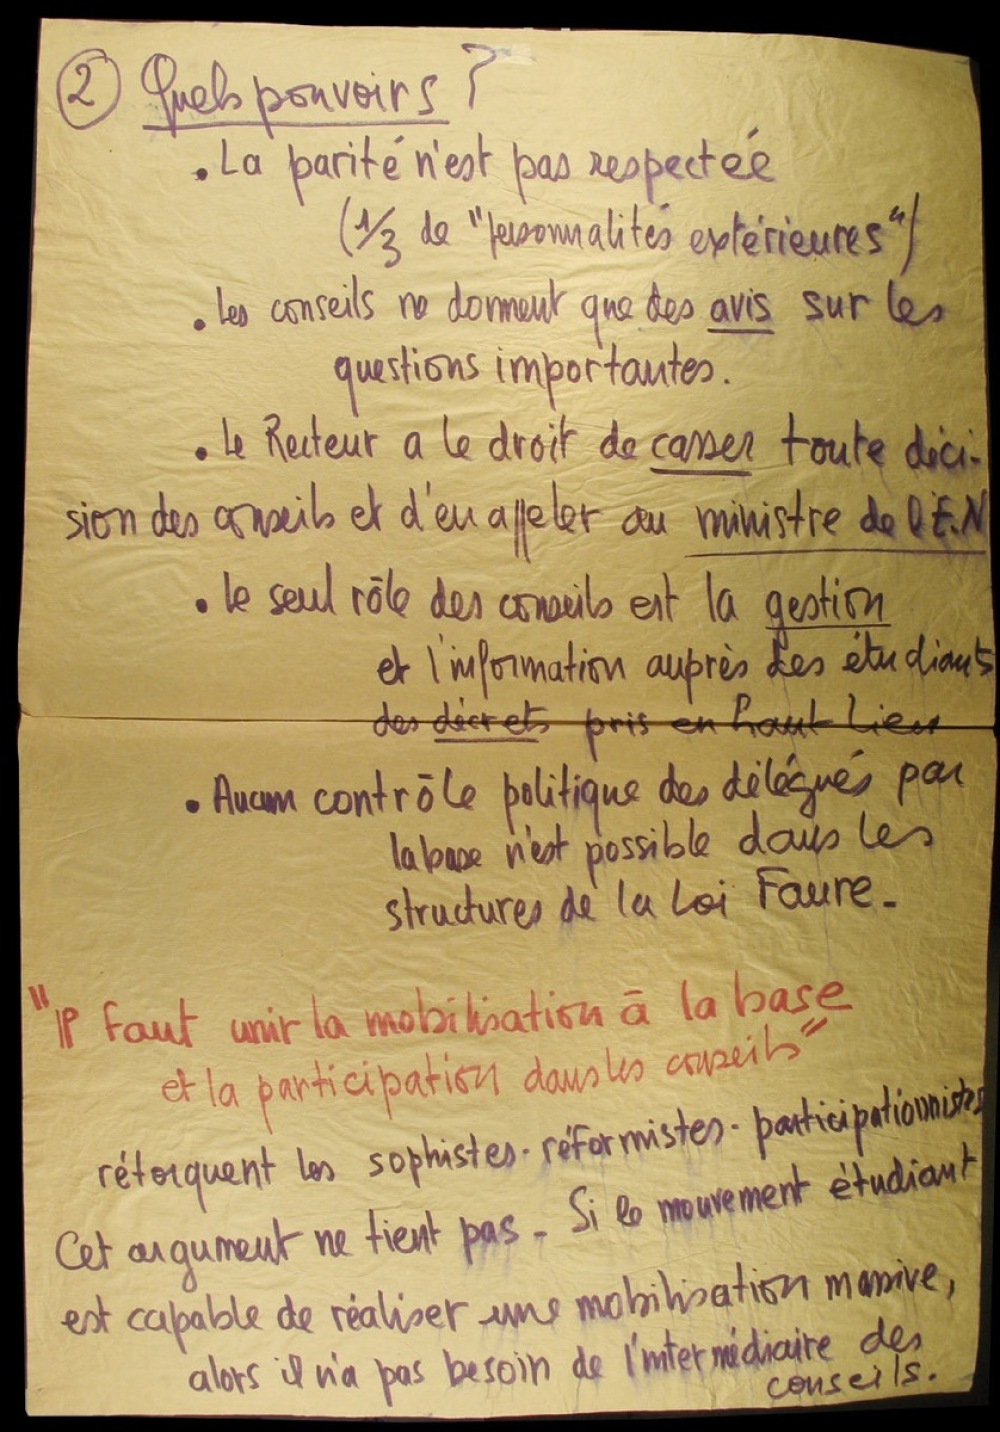 ② Quels pouvoirs ?
• La parité n'est pas respectée
(1/3 de "personnalités extérieures")
• Les conseils ne donnent que des avis sur les
questions importantes.
• Le Recteur a le droit de casser toute déci-
sion des conseils et d'en appeler au ministre de l'E.N
• le seul rôle des conseils est la gestion
et l'information auprès des étudiants
des décrets pris en haut lieu
• Aucun contrôle politique des délégués par
la base n'est possible dans les
structures de la Loi Faure -
"Il faut unir la mobilisation à la base
et la participation dans les conseils"
rétorquent les sophistes - réformistes - participationnistes
Cet argument ne tient pas - Si le mouvement étudiant
est capable de réaliser une mobilisation massive,
alors il n'a pas besoin de l'intermédiaire des
conseils.